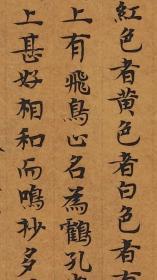 紅色者黄色者白色者有
上有飛鳥心名為鶴孔
上甚好相和而鳴抄多